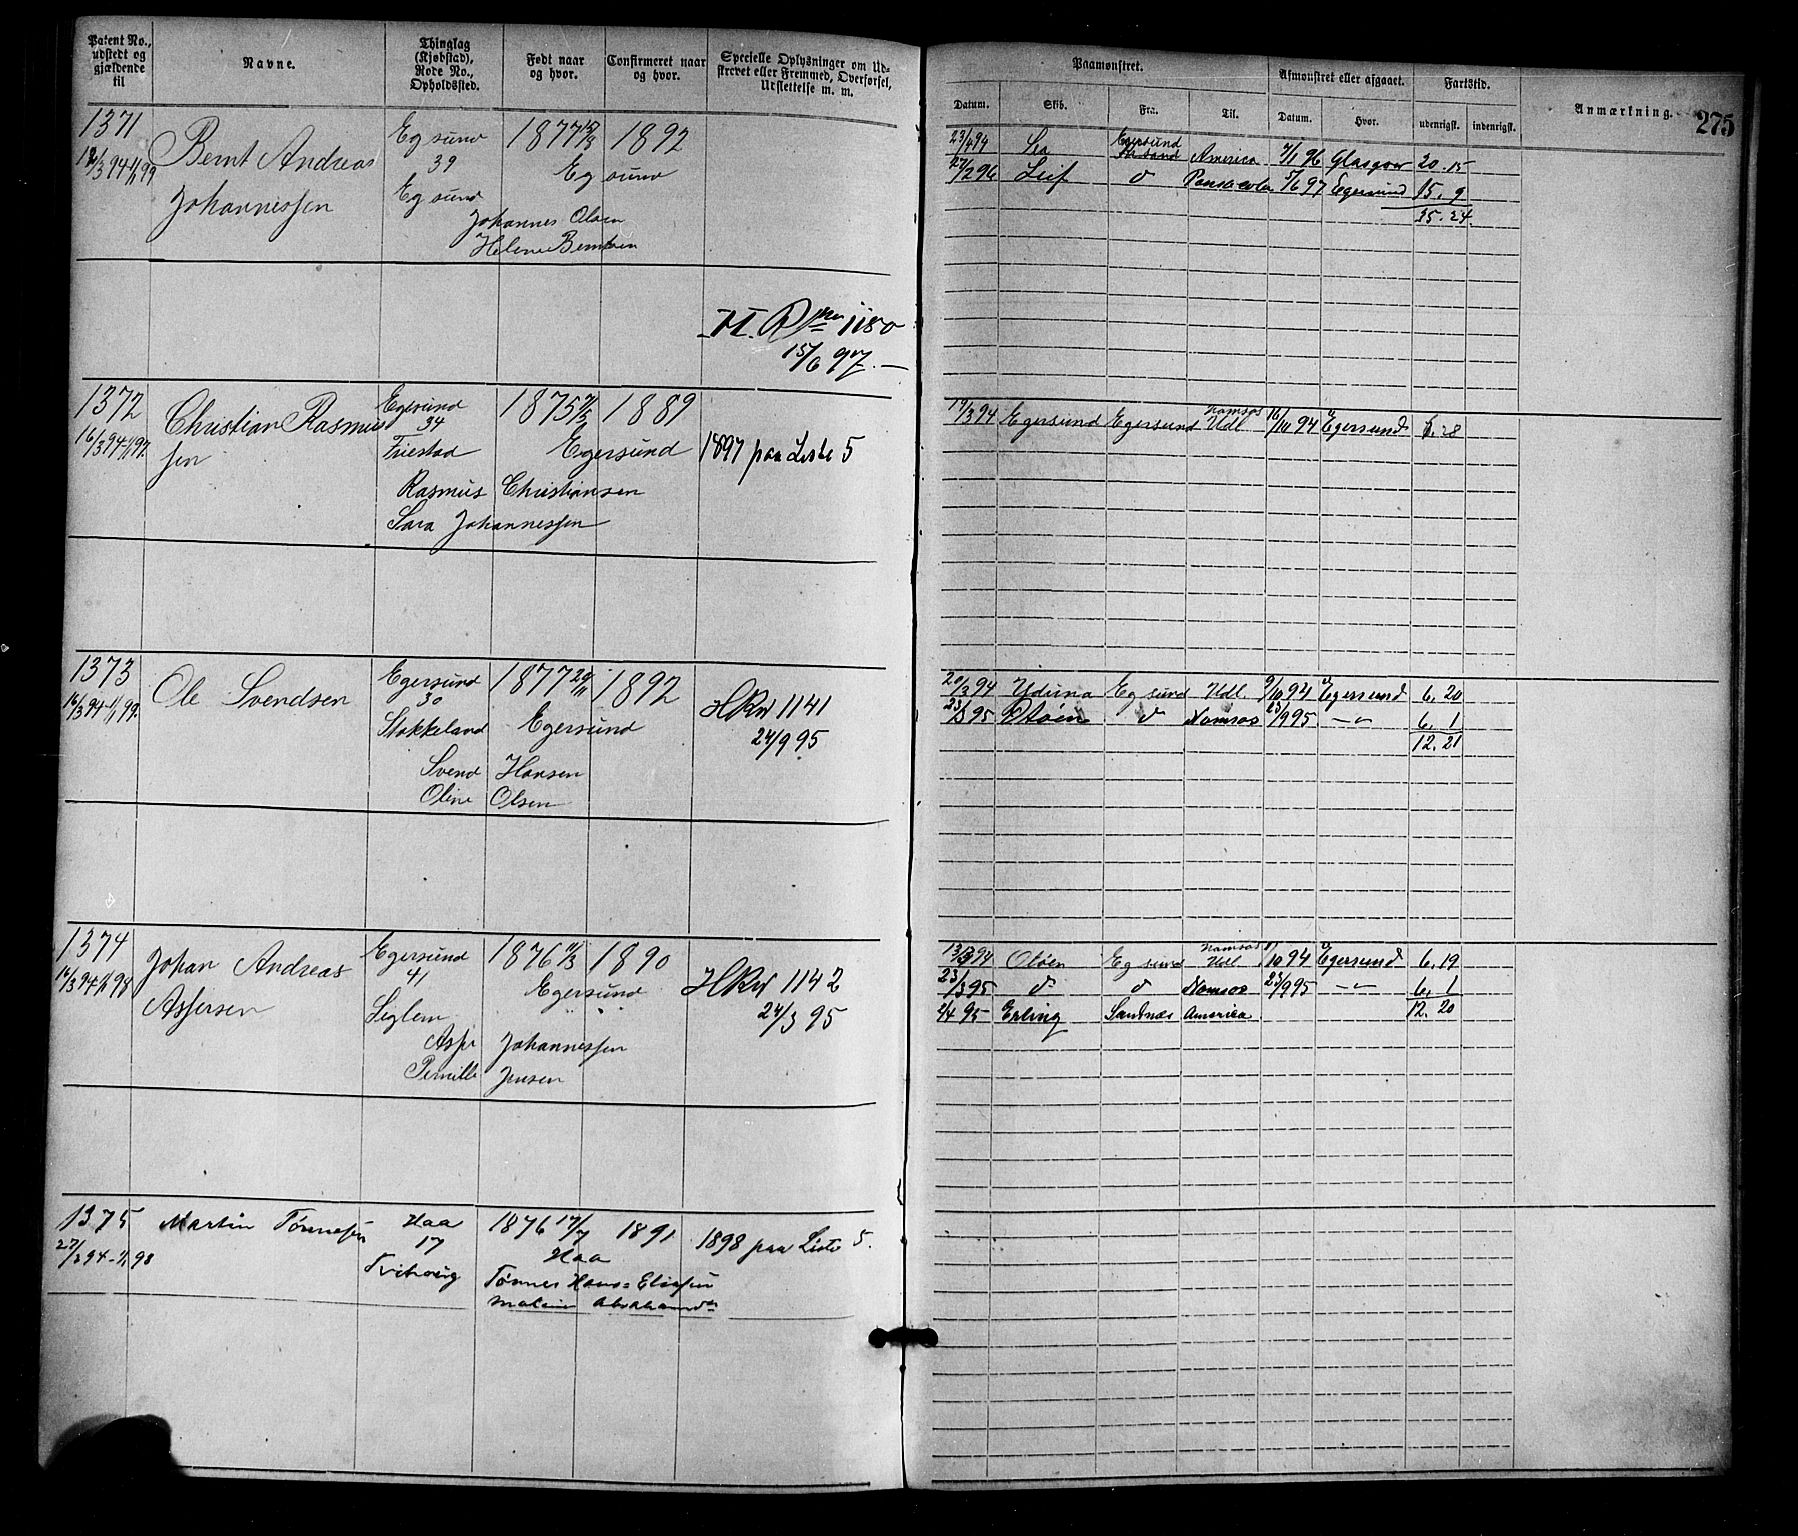 Patent No., udstedt og gjældende til
Navne.
Thinglag (Kjøbstad), Rode No., Opholdssted.
Født naar og hvor.
Confirmeret naar og hvor.
Specielle Oplysninger om Udskrevet eller Fremmed, Overførsel, Udslettelse m. m.
Paamønstret.
Afmønstret eller afgaaet.
Fartstid.
Anmærkning.
275
Datum.
Skib.
Fra.
Til.
Datum.
Hvor.
udenrigsk.
indenrigsk.
1371
Bernt Andreas
Johannessen
Eg sund
39
Eg sund
1877
1892
Eg sund
Johannes Olsen
Helene Berntsen
1180
15/6 97.
23/4 94 Lea Egersund America 7/1 96 Glasgow 20.15
27/2 96 Leif d Pensacola 5/6 97 Egersund 15.9
35.24
1372
16/3 94-1/1 97
Christian Rasmus
sen
Egersund
34
Friestad
1875
1889
Egersund
1897 paa Liste 5
Rasmus Christiansen
Sara Johannessen
19/3 94 Egersund Egersund Namsos Udl 16/10 94 Egersund 6.28
1373
16/3 94-1/1 99.
Ole Svendsen
Egersund
30
Stokkeland
1877 29/11
1892
Egersund
HRul 1141
24/9 95
Svend Hansen
Oline Olsen
20/3 94 Yduna Eg sund Udl 9/10 94 Egersund 6.20
23/3 95 d Namsos 23/9 95 -"- 6.1
12.21
1374
Johan Andreas
Assersen
Egersund
41
Seglem
1876 11/3
1890
Egersund
HRul 1142
24/3 95
Johannessen
Pernille Jensen
13/3 94 Eg sund Namsos Udl 8/10 94 Egersund 6.19
23/3 95 d d Namsos 23/9 95 -"- 6.1
2/4 95 Erling Sandnæs America 12.20
1375
27/3 94-1/1 98
Martin Tønnesen
Haa
17
1876 17/7
1891
Haa
1898 paa Liste 5.
Tønnes Hans= Eliassen
Malene